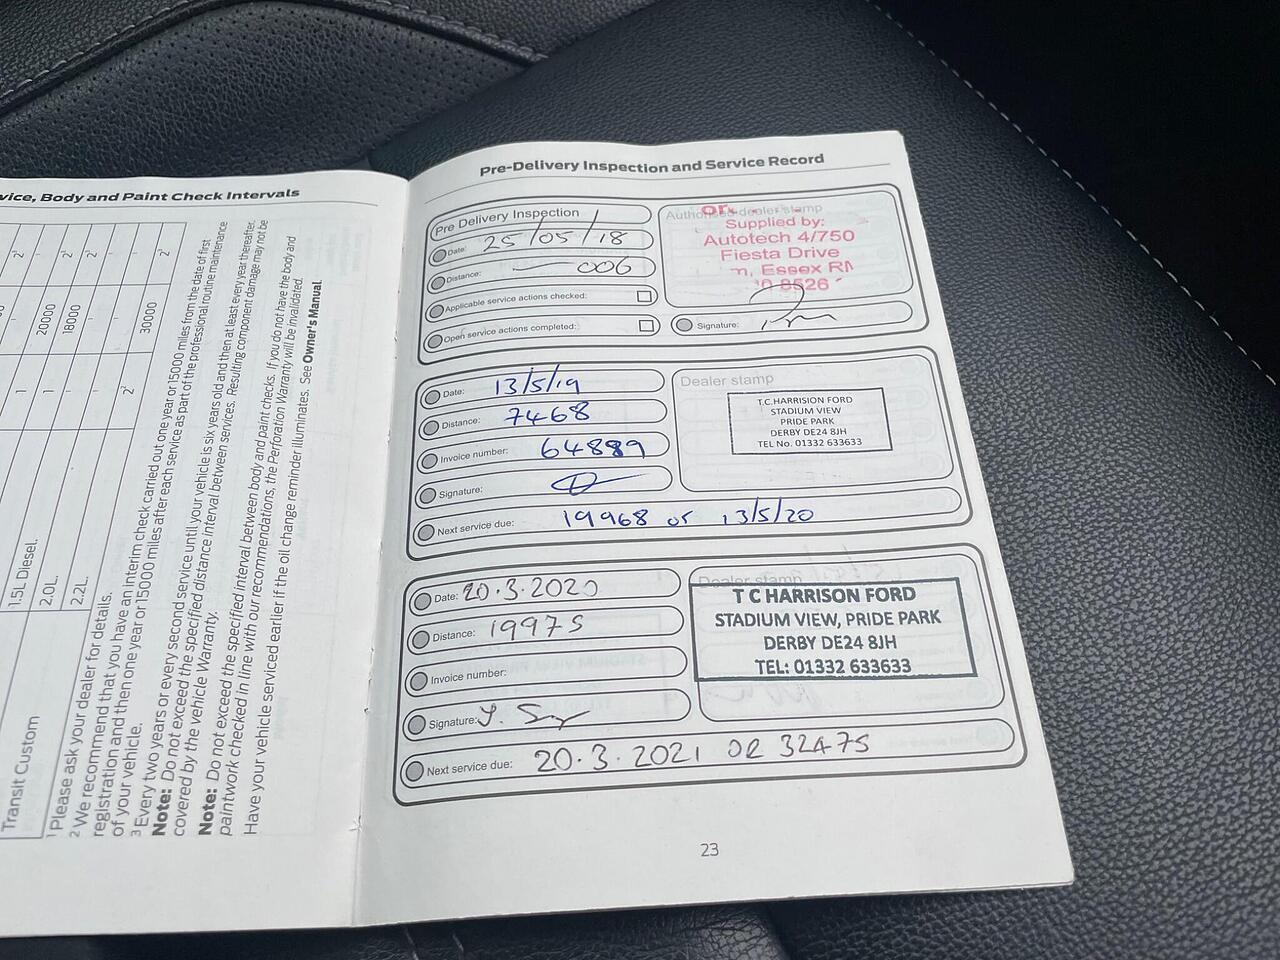 vice, Body and Paint Check Intervals
20000
18000
30000
1.5L Diesel.
2.0L
2.2L
Transit Custom
1 Please ask your dealer for details.
2 We recommend that you have an interim check carried out one year or 15000 miles from the date of first
registration and then one year or 15000 miles after each service as part of the professional routine maintenance
of your vehicle.
3 Every two years or every second service until your vehicle is six years old and then at least every year thereafter.
Note: Do not exceed the specified distance interval between services. Resulting component damage may not be
covered by the vehicle Warranty.
Note: Do not exceed the specified interval between body and paint checks. If you do not have the body and
paintwork checked in line with our recommendations, the Perforation Warranty will be invalidated.
Have your vehicle serviced earlier if the oil change reminder illuminates. See Owner's Manual.
Pre-Delivery Inspection and Service Record
Pre Delivery Inspection
Date: 25/05/18
Distance: —006
Applicable service actions checked:
Open service actions completed:
Authorised dealer stamp
Supplied by:
Autotech 4/750
Fiesta Drive
Essex
8526
Signature:
Date: 13/5/19
Distance: 7468
Invoice number: 64889
Signature:
Next service due: 19968 or 13/5/20
Dealer stamp
T.C.HARRISON FORD
STADIUM VIEW
PRIDE PARK
DERBY DE24 8JH
TEL No. 01332 633633
Date: 20.3.2020
Distance: 19975
Invoice number:
Signature:
Next service due: 20.3.2021 OR 32475
Dealer stamp
T C HARRISON FORD
STADIUM VIEW, PRIDE PARK
DERBY DE24 8JH
TEL: 01332 633633
23